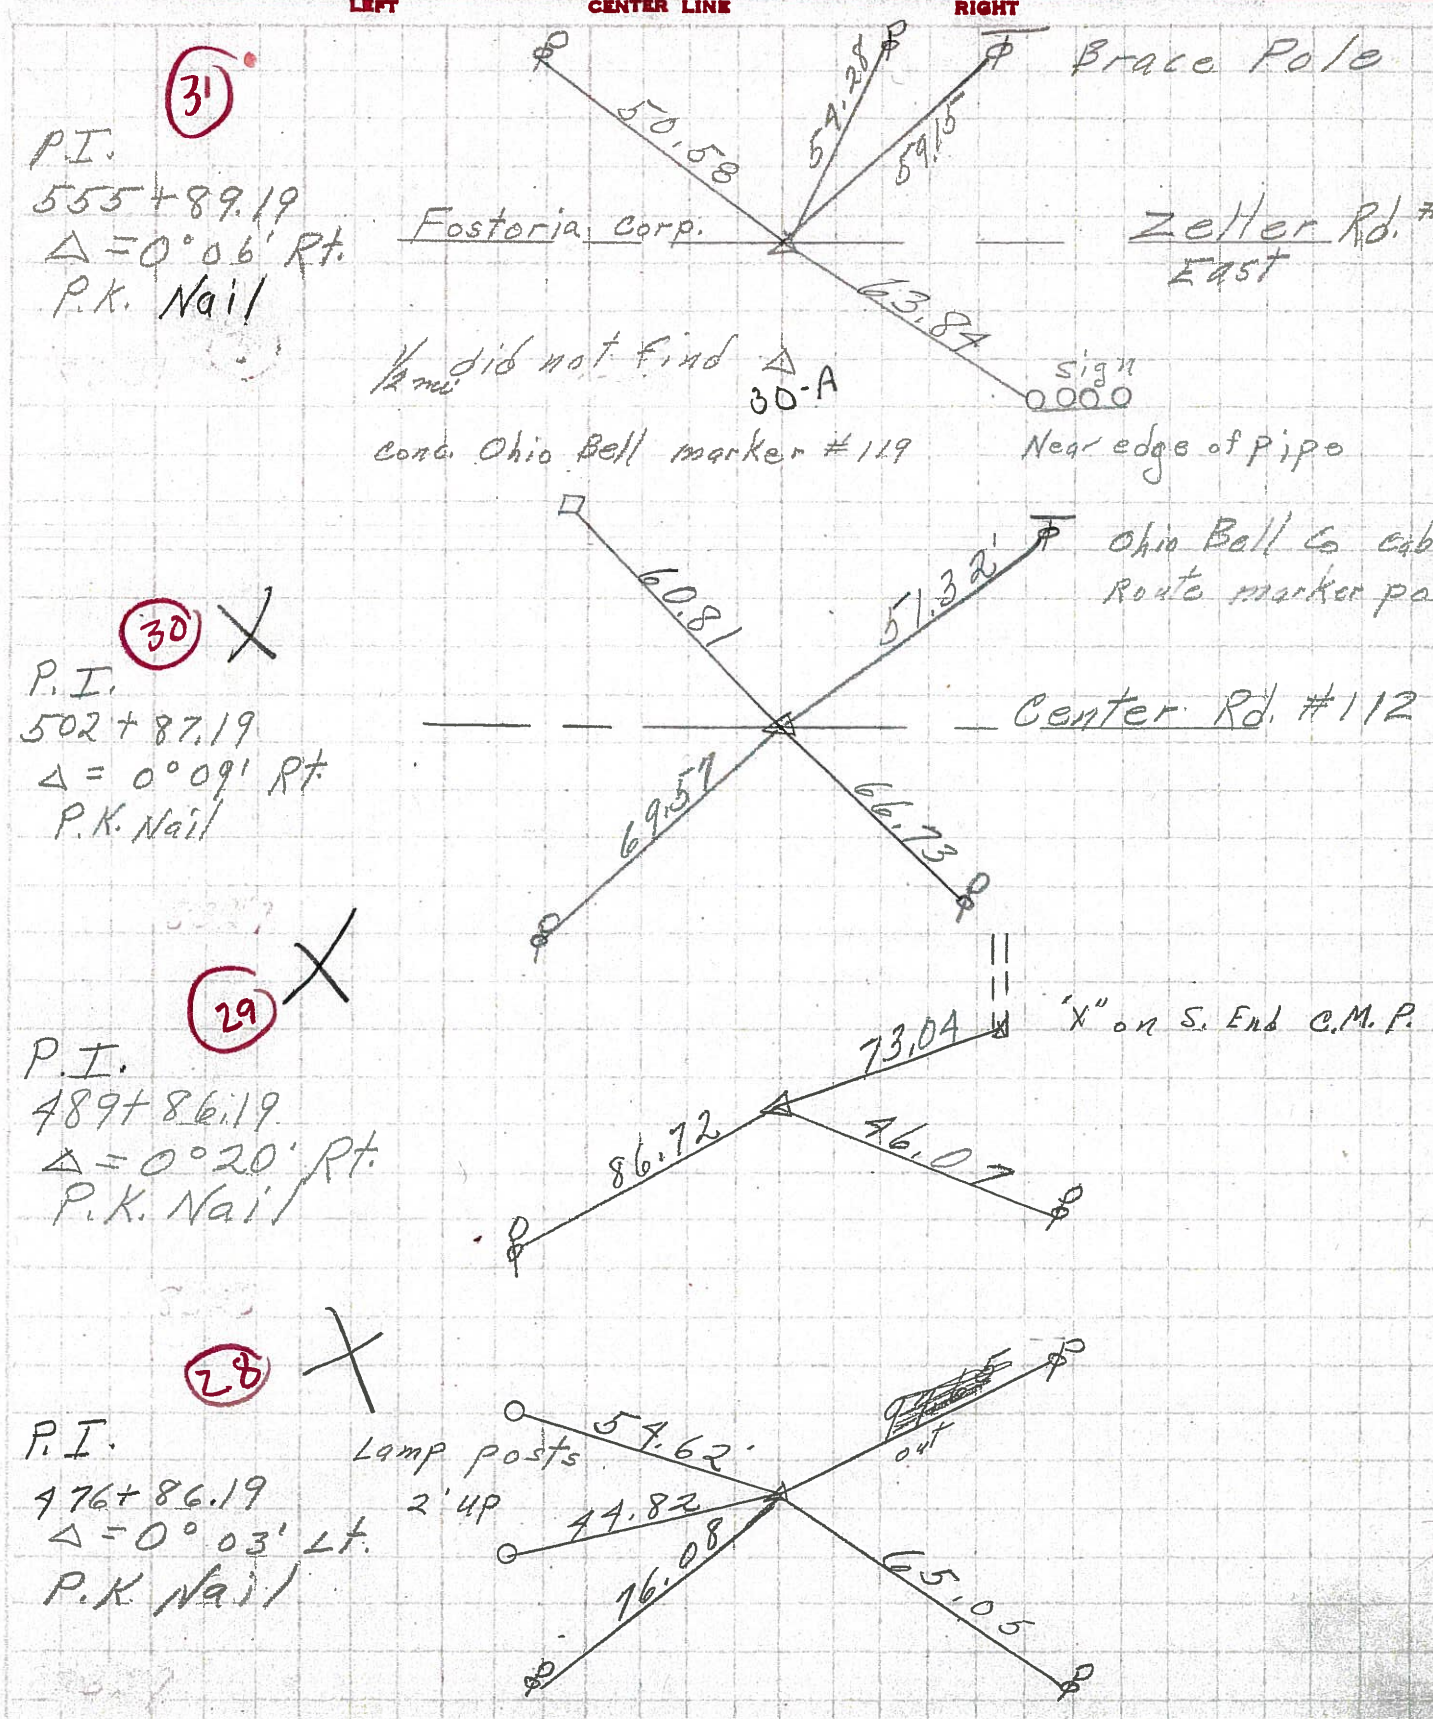 LEFT CENTER LINE RIGHT
31
P.I.
555+89.19
Δ=0°06' Rt.
P.K. Nail
50.58
54.28
59.15
Brace Pole
Fostoria Corp.
Zeller Rd. #
East
63.84
sign
Near edge of pipe
1/2 mi. did not find Δ
30-A
conc. Ohio Bell marker #119
30 X
P.I.
502+87.19
Δ= 0°09' Rt.
P.K. Nail
60.81
51.32'
Ohio Bell Co cab
Route marker po
Center Rd. #112
69.57
66.73
29 X
P.I.
489+86.19
Δ=0°20' Rt.
P.K. Nail
73.04
"X" on S. End C.M.P.
86.72
46.07
28 X
P.I.
476+86.19
Δ=0°03' Lt.
P.K Nail
Lamp posts
2' up
54.62'
44.82
76.08
out
65.05